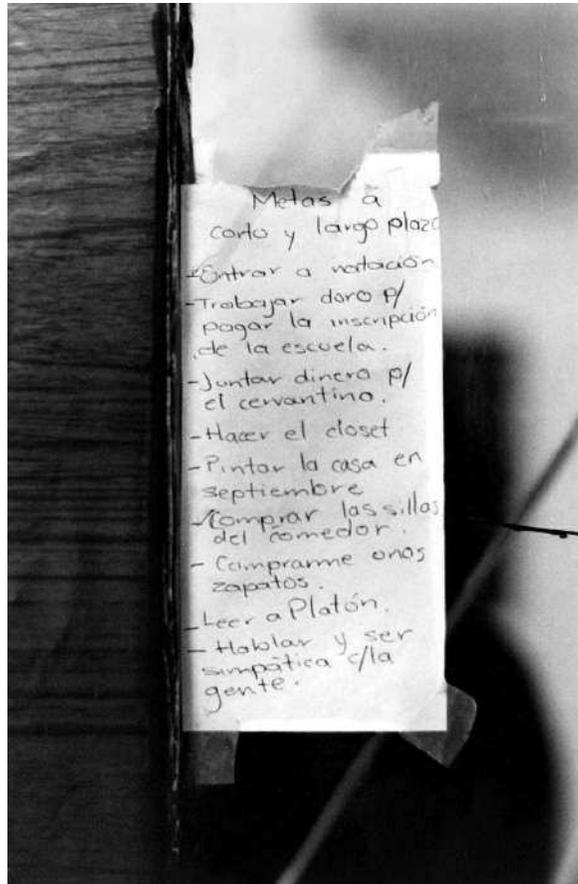 Metas a
corto y largo plazo
-Entrar a natación
-Trabajar duro p/
pagar la inscripción
de la escuela.
-Juntar dinero p/
el cervantino.
-Hacer el closet
-Pintar la casa en
septiembre
-Comprar las sillas
del comedor.
-Comprarme unos
zapatos.
-Leer a Platón.
-Hablar y ser
simpática c/la
gente.